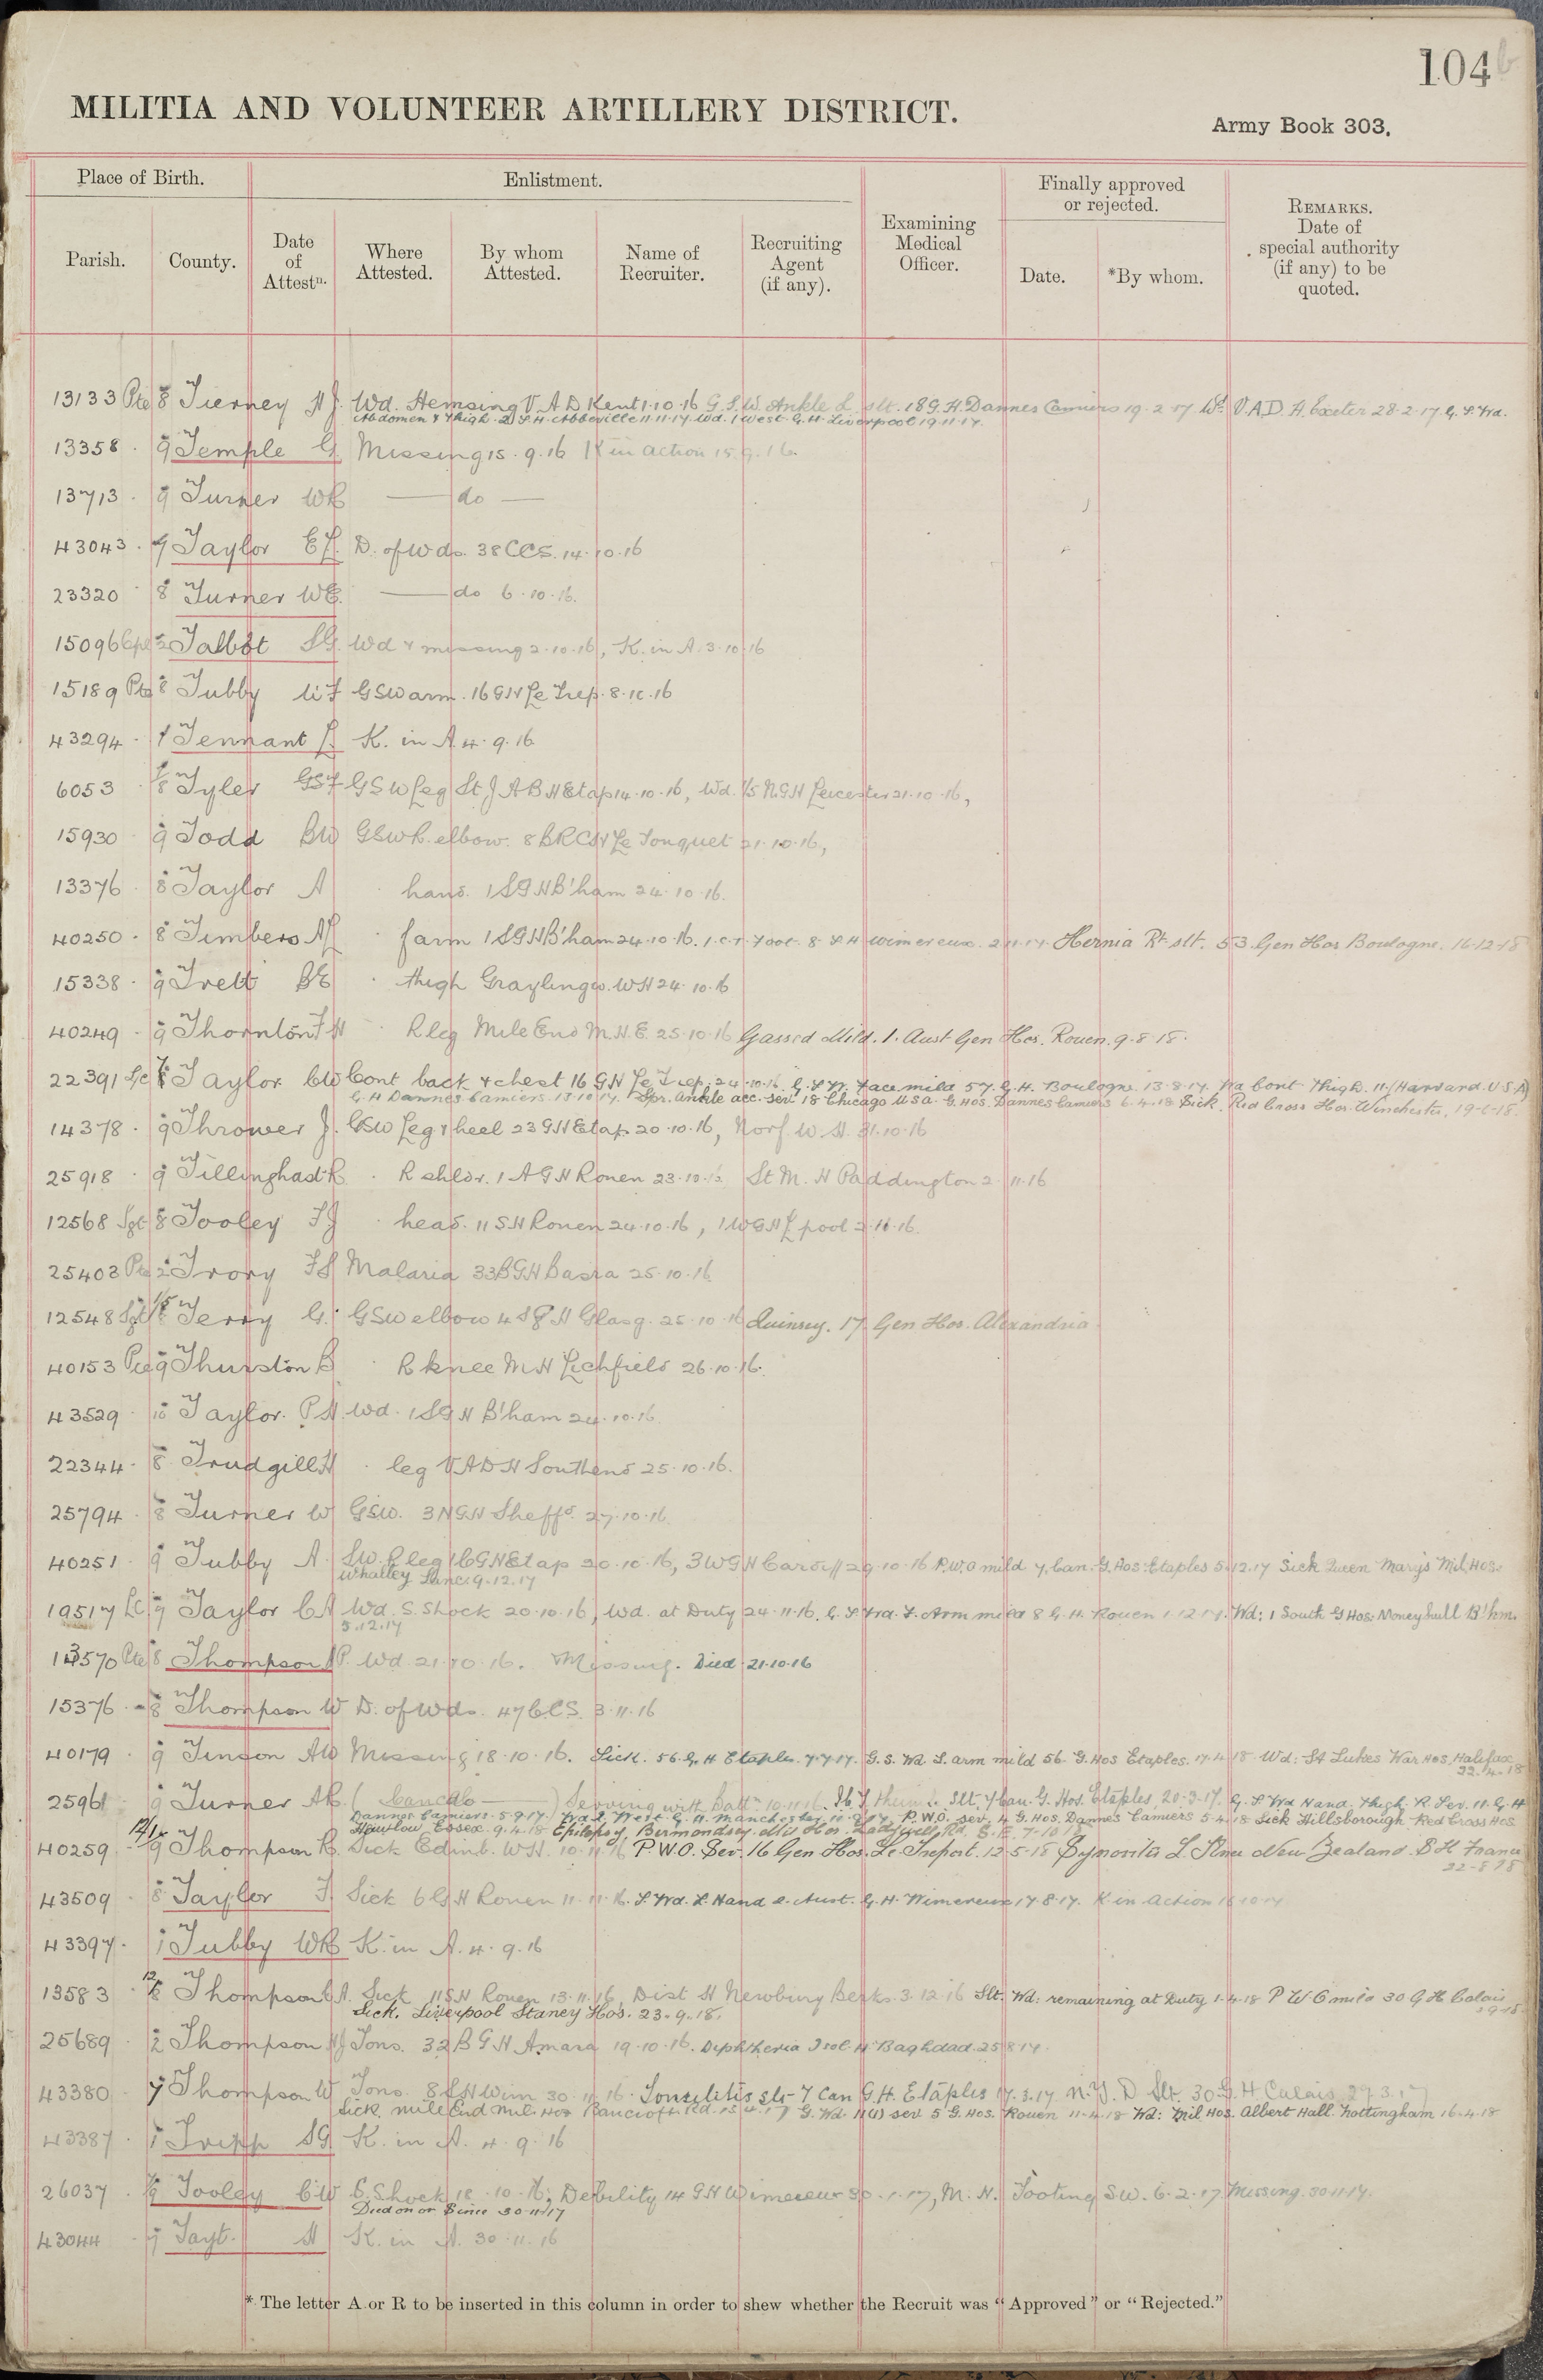 104
MILITIA AND VOLUNTEER ARTILLERY DISTRICT.
Army Book 303.
Place of Birth.
Enlistment.
Finally approved or rejected.
Parish.
County.
Date of Attestn.
Where Attested.
By whom Attested.
Name of Recruiter.
Recruiting Agent (if any).
Examining Medical Officer.
Date.
*By whom.
REMARKS. Date of special authority (if any) to be quoted.
13133 Pte 8 Tierney H J. Wd. Hemsing V.A.D Kent 1.10.16 G.S.W. Ankle L. slt. 18 G.H. Dannes Camiers 19.2.17 Wd. V.A.D. H. Exeter 28.2.17 G.S.Wd.
Abdomen & Thigh. 2 S.H. Abbeville 11.11.17. Wd. 1 West. G.H. Liverpool 19.11.17.
13358 . 9 Temple G. Missing 15.9.16 K in action 15.9.16.
13713 . 9 Turner WR — do —
43043 . 7 Taylor E L. D. of Wds. 38 CCS. 14.10.16
23320 8 Turner WE. — do 6.10.16.
15096 Cpl 2 Talbot S G. Wd & missing 2.10.16, K. in A. 3.10.16
15189 Pte 8 Tubby W F GSW arm. 16 GH Le Trep. 8.10.16
43294 . 1 Tennant L. K. in A 4.9.16
6053 . 1/8 Tyler GSF GSW Leg St J A B H Etap 14.10.16, Wd. 1/5 N G H Leicester 21.10.16,
15930 9 Todd BW GSW R. elbow. 8 BRCSH Le Touquet 21.10.16,
13376 8 Taylor A . hand. 1 S G H B'ham 24.10.16.
40250 . 8 Timbers A L . farm 1 SGH B'ham 24.10.16. I.C.T. Foot. 8 S H Wimereux. 2.11.17. Hernia Rt slt. 53 Gen Hos Boulogne. 16.12.18
15338 . 9 Trett B E . thigh Graylingw. WH 24.10.16
40249 . 9 Thornton F H . R leg Mile End M.H.E. 25.10.16 Gassed Mild. 1. Aust Gen Hos. Rouen. 9.8.18.
22391 L/c Taylor CW Cont back & chest 16 GH Le Trep. 24.10.16. G.S.W. Face mild 57 G.H. Boulogne. 13.8.17. Wd Cont Thigh. 11 (Harvard. U S A)
G.H Dannes Camiers. 13.10.17. Spr. Ankle acc. sev. 18 Chicago USA. G. Hos. Dannes Camiers 6.4.18 Sick. Red Cross Hos. Winchester, 19-6-18.
14378 . 9 Thrower J. GSW Leg & heel 23 GH Etap. 20.10.16, Norf. W. H. 31.10.16
25918 . 9 Tillinghast R . R shldr. 1 A G H Rouen 23.10.16 St M. H Paddington 2.11.16
12568 Sgt 8 Tooley F J . head. 11 SH Rouen 24.10.16, 1 W G H L'pool 2.11.16.
25403 Pte 2 Trory F S Malaria 33 B G H Basra 25.10.16.
12548 Sgt 1/5 8 Terry G. GSW elbow 4 S G H Glasg. 25.10.16 Quinsey. 17 Gen Hos. Alexandria
40153 Pte 9 Thurston B . R knee M H Lichfield 26.10.16.
43529 . 10 Taylor. P H. Wd. 1 S G H B'ham 24.10.16.
22344 . 8 Trudgill H . leg V A D H Southend 25.10.16.
25794 . 8 Turner W GSW. 3 N G H Sheffd. 27.10.16.
40251 . 9 Tubby A. S.W. R leg 1 C G H Etap 20.10.16, 3 W G H Cardiff 29.10.16 P.W.O mild 7 Can. G. Hos. Etaples 5.12.17 Sick Queen Mary's Mil. Hos.
Whalley Lanc. 9.12.17
19517 LC 9 Taylor C A Wd. S. Shock 20.10.16, Wd. at Duty 24.11.16. G.S.Wd. F. Arm mild 8 G.H. Rouen 1.12.17. Wd: 1 South G Hos: Moneyhull B'hm.
5.12.17
13570 Pte 8 Thompson A P. Wd 21.10.16. Missing. Died 21.10.16
15376 . 8 Thompson W D. of Wds. 47 C.C.S. 3.11.16
40179 . 9 Tinson AW Missing 18.10.16. Sick. 56. G.H. Etaples. 7.7.17. G.S. Wd. L. arm mild 56 G. Hos Etaples. 17.4.18 Wd: St Lukes War Hos, Halifax
22.4.18
25961 9 Turner A R. ( Cancd — ) Serving with Battn 10.11.16. slt. 7 Can. G. Hos. Etaples 20.3.17. G.S Wd Hand. Thigh R. Sev. 11. G.H
Dannes Camiers. 5.9.17. Wd 2 West G.H. Manchester P.W.O. sev. 4 G. Hos. Dannes Camiers 5.4.18 Sick Hillsborough Red Cross Hos
Essex. 9.4.18 Epilepsy, Bermondsey. Mil Hos. Ladywell Rd. S.E. 7-10
40259 . 9 Thompson R. Sick Edinb. W H. 10.11.16 P.W.O. Sev. 16 Gen Hos. Le Treport. 12-5-18 Synovitis L. Knee New Zealand. S H France
22-8-18
43509 . 8 Taylor F Sick 6 G H Rouen 11.11.16. S. Wd. L. Hand 2. Aust. G.H. Wimereux 17.8.17. K in action 16.10.17.
43397 . 1 Tubby WR K. in A. 4.9.16
13583 . 12/8 Thompson C A. Sick 11 S H Rouen 13.11.16, Dist H Newbury Berks. 3.12.16 Slt. Wd: remaining at Duty 1.4.18 P W O mild 30 G H Calais
Sick. Liverpool Stanley Hos. 23.9.18.
25689 . 2 Thompson H J Tons. 32 B G H Amara 19.10.16. Diphtheria Isol. H. Baghdad. 25.8.17.
43380 . 7 Thompson W Tons. 8 S H Wim 30.11.16. Tonsilitis slt 7 Can G.H. Etaples 17.3.17 N.Y.D Slt. 30 G. H Calais 29.3.17
Sick. Mile End Mil. Hos Bancroft Rd. 15.4.17 G. Wd. 11(1) sev 5 G. Hos. Rouen 11-4-18 Wd: Mil Hos. Albert Hall. Nottingham 16.4.18
43387 . 1 Tripp S G K. in A. 4.9.16
26037 . 9 Tooley C W S. Shock 18.10.16, Debility 14 G H Wimereux 30.1.17, M. H. Tooting S W. 6.2.17. Missing. 30.11.17.
Died on or Since 30.11.17
43044 . 7 Tayt. H K. in A. 30.11.16
* The letter A or R to be inserted in this column in order to shew whether the Recruit was "Approved" or "Rejected."